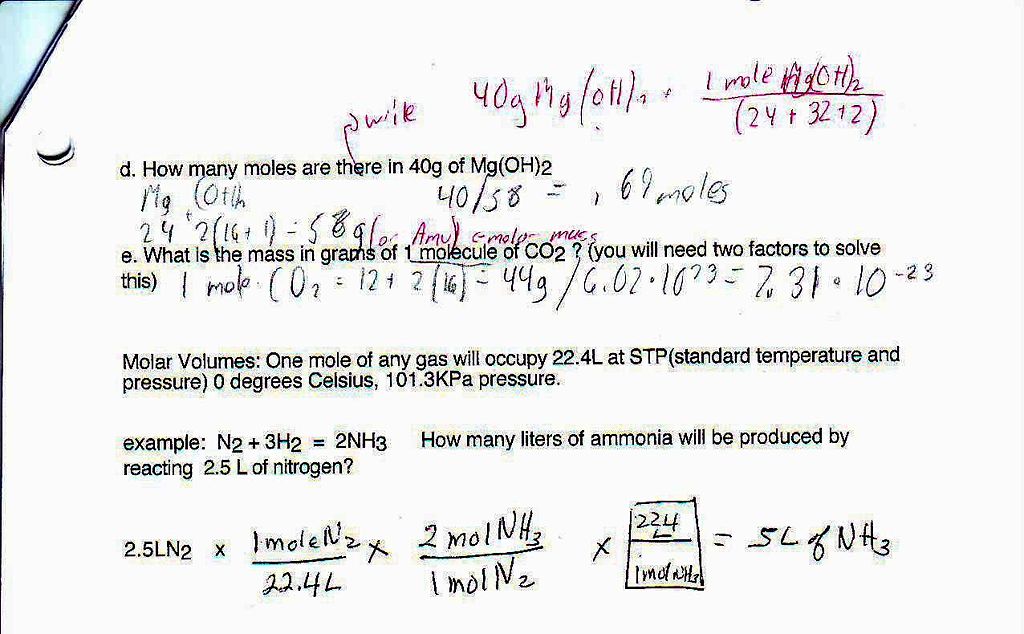 40g Mg(OH)2 · 1 mole Mg(OH)2
write (24 + 32+2)
d. How many moles are there in 40g of Mg(OH)2
Mg (OH)2 40/58 = .69 moles
24 + 2(16+1) = 58g (or Amu) molar mass
e. What is the mass in grams of 1 molecule of CO2 ? (you will need two factors to solve
this) 1 mole CO2 = 12 + 2(16) = 44g / 6.02·10 23 = 7.31 · 10 -23
Molar Volumes: One mole of any gas will occupy 22.4L at STP(standard temperature and
pressure) 0 degrees Celsius, 101.3KPa pressure.
example: N2 + 3H2 = 2NH3 How many liters of ammonia will be produced by
reacting 2.5 L of nitrogen?
2.5LN2 x 1moleN2 x 2 mol NH3 x 22.4 L = 5L of NH3
22.4L 1 mol N2 1mol NH3